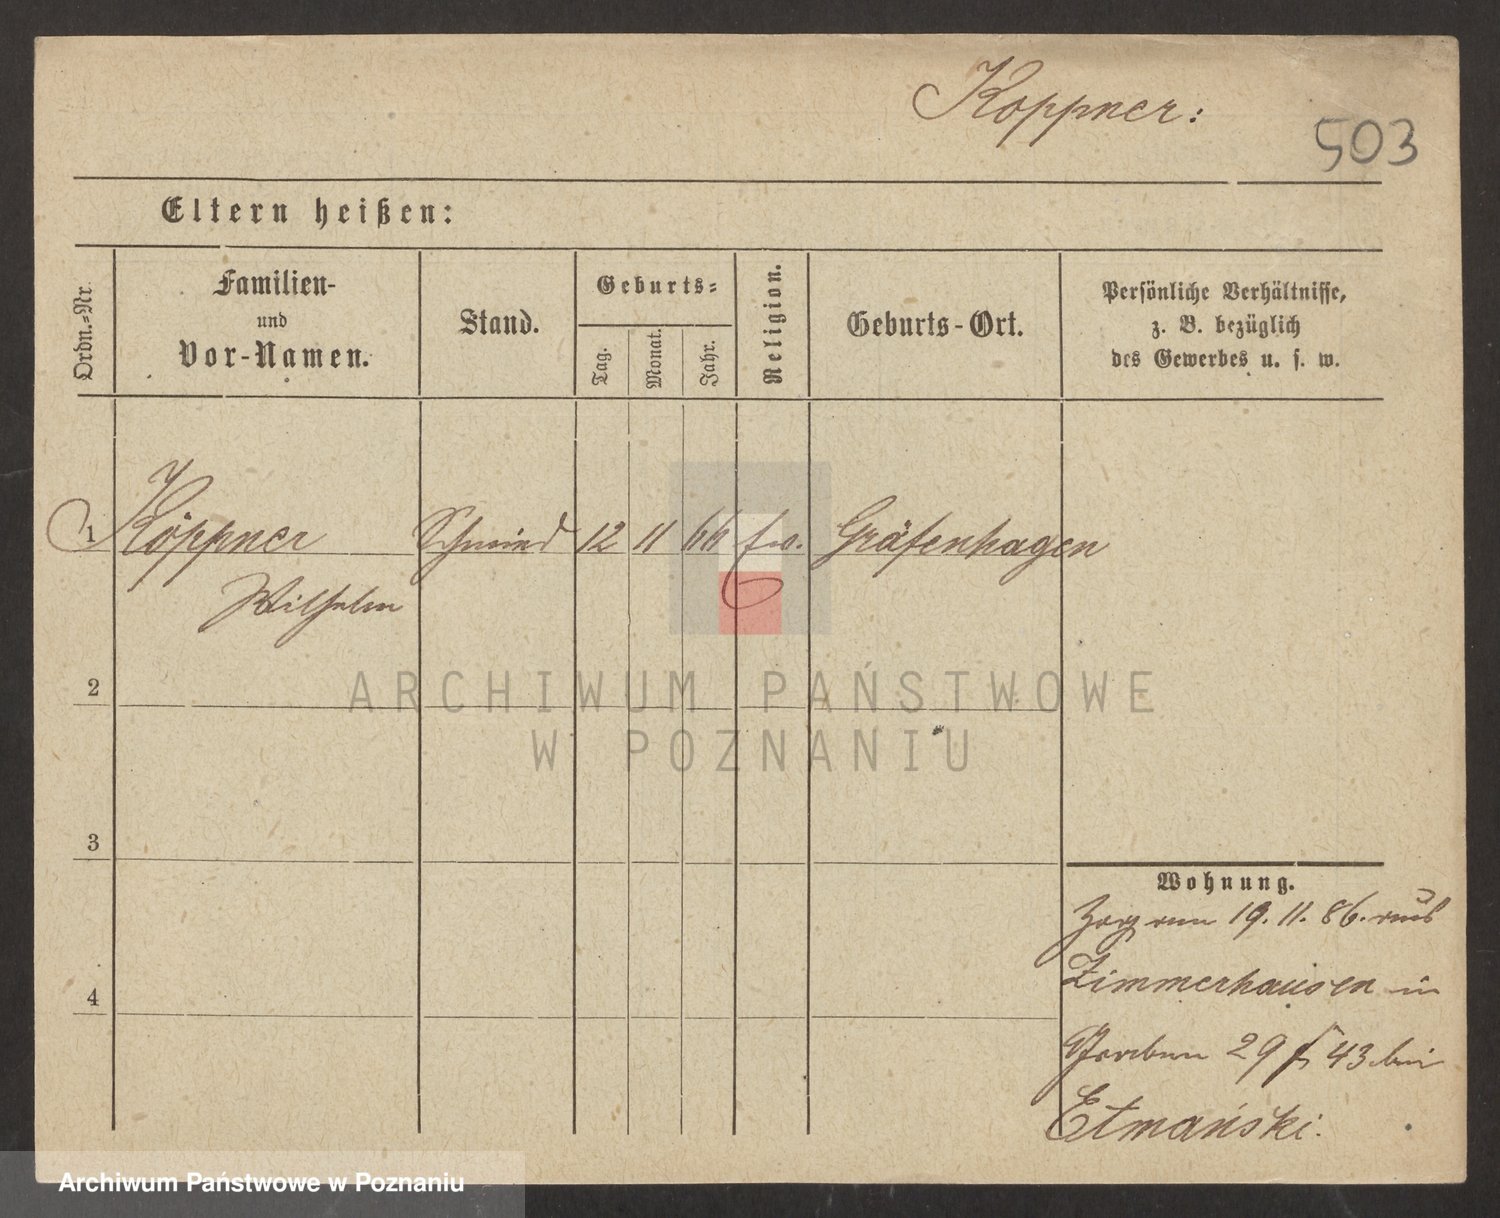 Koppner:
503
Eltern heißen:
Ordn.-Nr.
Familien-
und
Vor-Namen.
Stand.
Geburts-
Tag.
Monat.
Jahr.
Religion.
Geburts-Ort.
Persönliche Verhältnisse,
z. B. bezüglich
des Gewerbes u. s. w.
1 Köppner Schmied 12 11 66 Gräfenhagen
Wilhelm
2
3
4
Wohnung.
19. 11. 86. aus
Zimmerhausen in
29 43 bei
Etmański.
ARCHIWUM PAŃSTWOWE
W POZNANIU
Archiwum Państwowe w Poznaniu